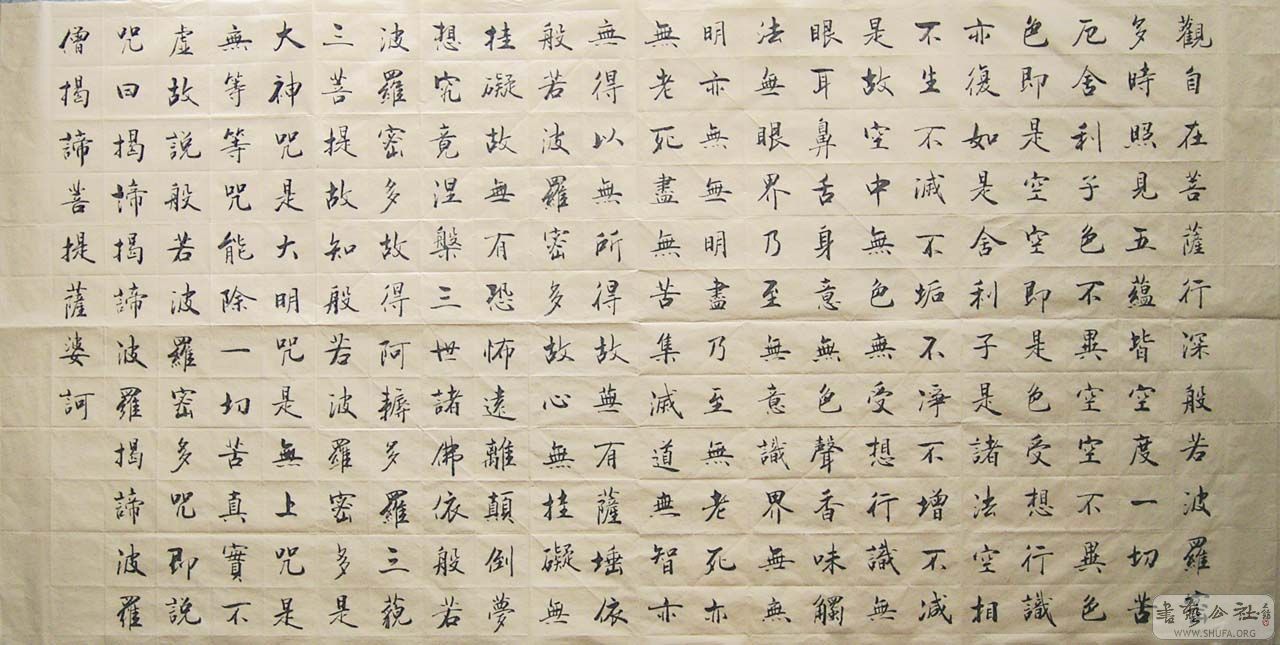 觀自在菩薩行深般若波羅
多時照見五蘊皆空度一切苦
厄舍利子色不異空空不異色
色即是空空即是色受想行識
亦復如是舍利子是諸法空相
不生不滅不垢不淨不增不減
是故空中無色無受想行識無
眼耳鼻舌身意無色聲香味觸
法無眼界乃至無意識界無無
明亦無無明盡乃至無老死亦
無老死盡無苦集滅道無智亦
無得以無所得故無有薩埵依
般若波羅密多故心無挂礙無
挂礙故無有恐怖遠離顛倒夢
想究竟涅槃三世諸佛依般若
波羅密多故得阿耨多羅三藐
三菩提故知般若波羅密多是
大神咒是大明咒是無上咒是
無等等咒能除一切苦真實不
虛故說般若波羅密多咒即說
咒曰揭諦揭諦波羅揭諦波羅
僧揭諦菩提薩婆訶
書藝公社
WWW.SHUFA.ORG